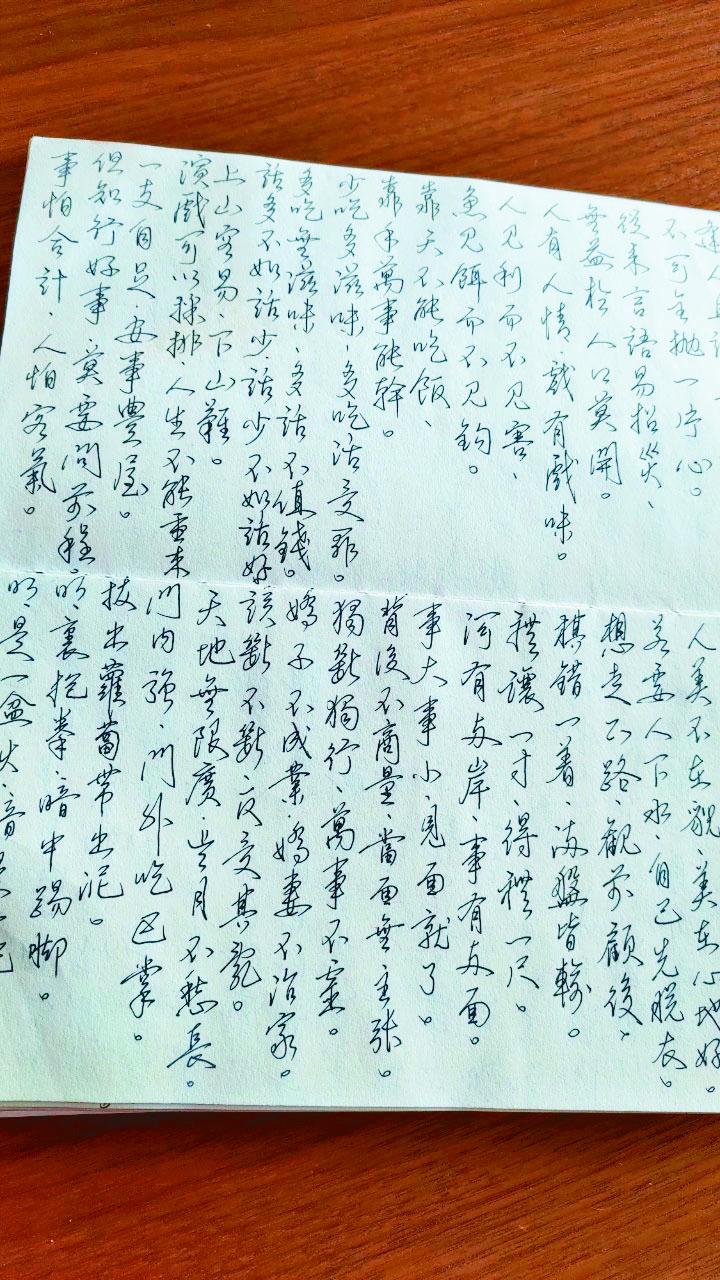 不可全抛一片心。
從来言語易招災、
無益於人口莫開。
人有人情、戲有戲味。
人見利而不見害、
魚見餌而不見鈎。
靠天不能吃飯、
靠手萬事能幹。
少吃多滋味、多吃活受罪。
多吃無滋味、多話不值錢。
話多不如話少、話少不如話好
上山容易、下山難。
演戲可以採排、人生不能重来
一支自足、安事豊屋。
但知行好事、莫要問前程
事怕合計、人怕客氣。
人美不在貌、美在心地好。
若要人下水自己先脱衣。
想走正路、觀前顧後、
棋錯一着、满盤皆輸。
禮讓一寸、得禮一尺。
河有两岸、事有两面。
事大事小、見面就了。
背後不商量、當面無主张。
獨斷獨行、萬事不靈。
嬌子不成業、嬌妻不治家。
該斷不斷、反受其亂。
天地無限廣、歲月不愁長。
門内强、門外吃巴掌。
拔出蘿蔔带出泥。
明裏抱拳、暗中踢脚。
明是一盆火、暗是一